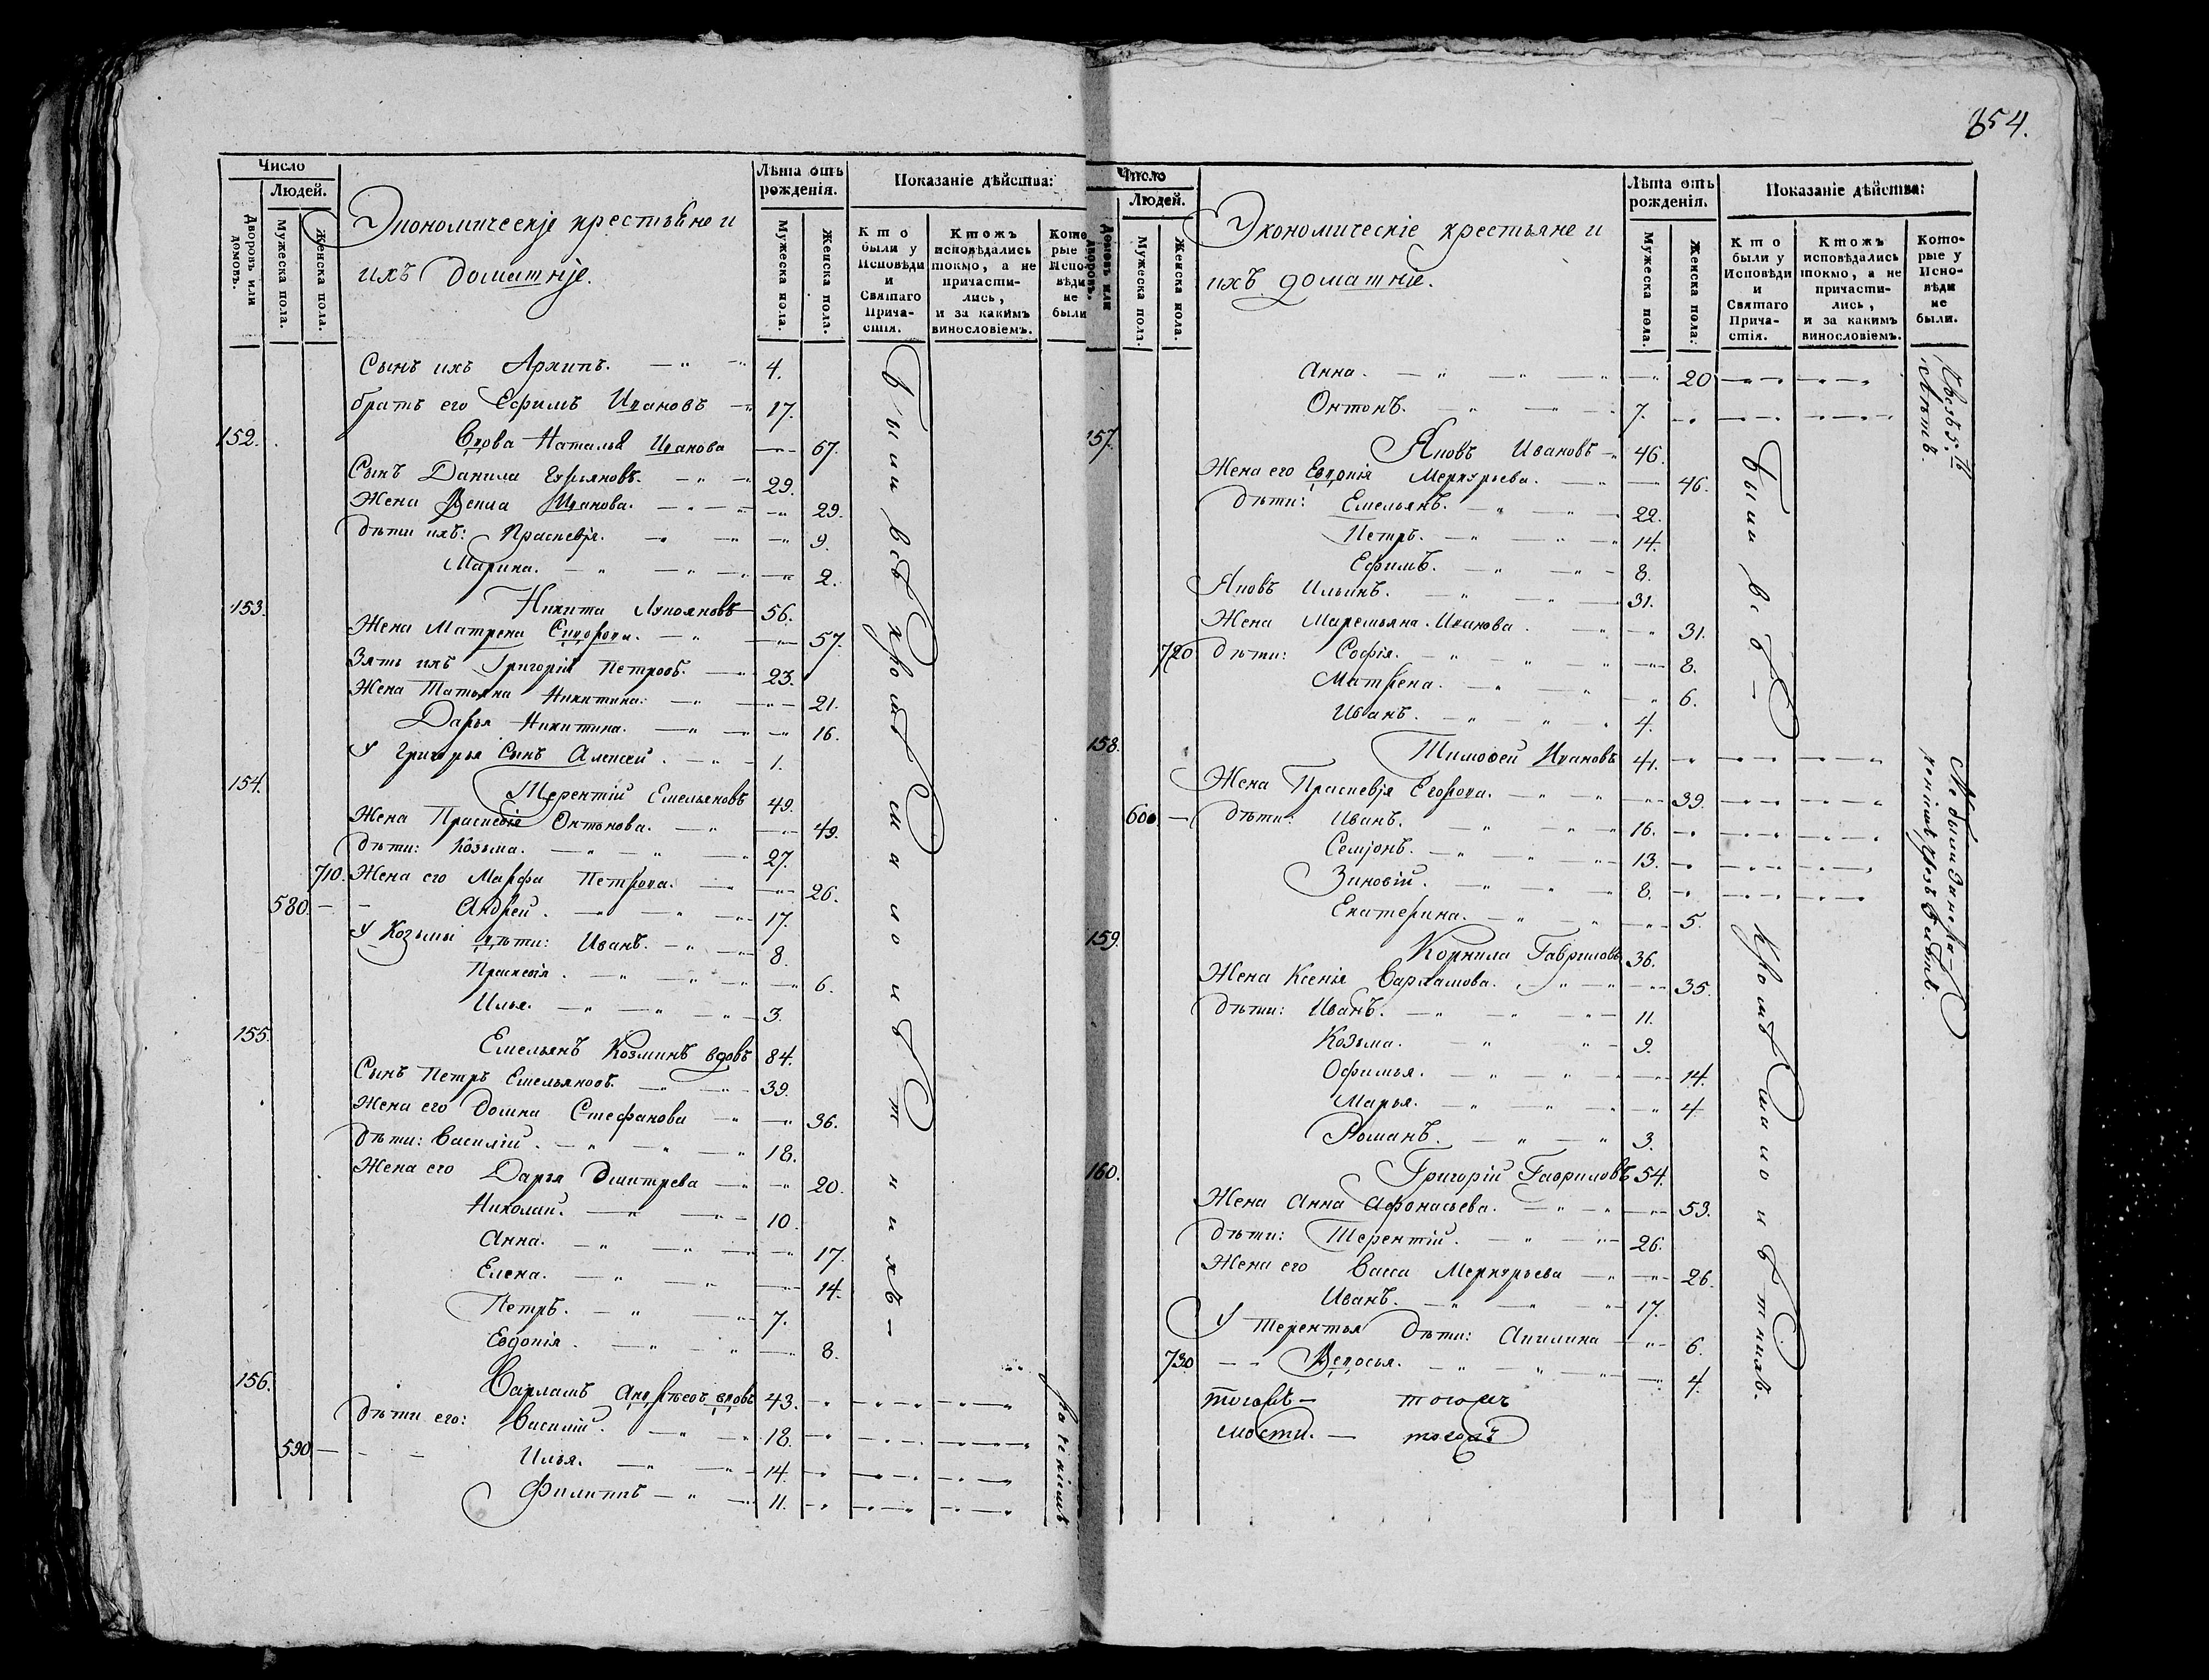 Число
Людей.
Дворовъ или домовъ.
Мужеска пола.
Женска пола.
Экономическіе крестьяне и
ихъ домашніе.
Лѣта отъ
рожденія.
Мужеска пола.
Женска пола.
Показаніе дѣйства:
Кто
были у
Исповѣди
и
Святаго
Прича-
стія.
Ктожъ
исповѣдались
токмо, а не
причасти-
лись,
и за какимъ
винословіемъ.
Кото
рые
Испо-
вѣди
не
были
Сынъ ихъ Архипъ. 4.
братъ его Ефимъ Ивановъ 17.
152. Вдова Наталья Иванова 67.
Сынъ Данила Гурьяновъ. 29.
Жена Векла Иванова. 29.
дѣти ихъ: Прасковія. 9.
Марина. 2.
153. Никита Лукояновъ 56.
Жена Матрена Сидорова. 57.
Зять ихъ Григорій Петровъ. 23.
Жена Татьяна Никитина. 21.
Дарья Никитина. 16.
У Григорья Сынъ Алексей. 1.
154. Терентій Емельяновъ 49.
Жена Прасковія Онтонова. 49.
дѣти: Козьма. 27.
710. Жена его Марфа Петрова. 26.
580. Андрей. 17.
У Козьмы дѣти: Иванъ. 8.
Прасковія. 6.
Илья. 3.
155. Емельянъ Козминъ вдовъ 84.
Сынъ Петръ Емельяновъ. 39.
Жена его Домна Стефанова 36.
дѣти: Василій. 18.
Жена его Дарья Дмитрева 20.
Николай. 10.
Анна. 17.
Елена. 14.
Петръ. 7.
Евдокія. 8.
156. Варламъ Андрѣевъ вдовъ 43.
дѣти его: Василій. 18.
590 Илья. 14.
Филиппъ 11.
Были всѣ кромѣ малолѣтнихъ
354.
Число
Людей.
Домовъ или дворовъ.
Мужеска пола.
Женска пола.
Экономическіе крестьяне и
ихъ домашніе.
Лѣта отъ
рожденія.
Мужеска пола.
Женска пола.
Показаніе дѣйства:
Кто
были у
Исповѣди
и
Святаго
Прича-
стія.
Ктожъ
исповѣдались
токмо, а не
причасти-
лись,
и за какимъ
винословіемъ.
Кото-
рые у
Испо-
вѣди
не
были.
Анна. 20
Онтонъ. 7.
157. Яковъ Ивановъ 46.
Жена его Евдокія Меркурьева. 46.
дѣти: Емельянъ. 22.
Петръ. 14.
Ефимъ. 8.
Яковъ Ильинъ. 31.
Жена Маремьяна Иванова. 31.
720 дѣти: Софія. 8.
Матрена. 6.
Иванъ. 4.
158. Тимофей Ивановъ 41.
Жена Прасковія Егорова. 39.
600 дѣти: Иванъ. 16.
Семіонъ. 13.
Зиновій. 8.
Екатерина. 5.
159. Корнила Гавриловъ 36.
Жена Ксенія Варламова. 35.
дѣти: Иванъ. 11.
Козьма. 9.
Офимья. 14.
Марья. 4
Романъ. 3.
160. Григорій Гавриловъ 54.
Жена Анна Афонасьева. 53.
дѣти: Терентій. 26.
Жена его Васса Меркурьева 26.
Иванъ. 17.
У Терентья дѣти: Акилина 6.
730 Ведосья. 4.
Были всѣ
кромѣ малолѣтнихъ.